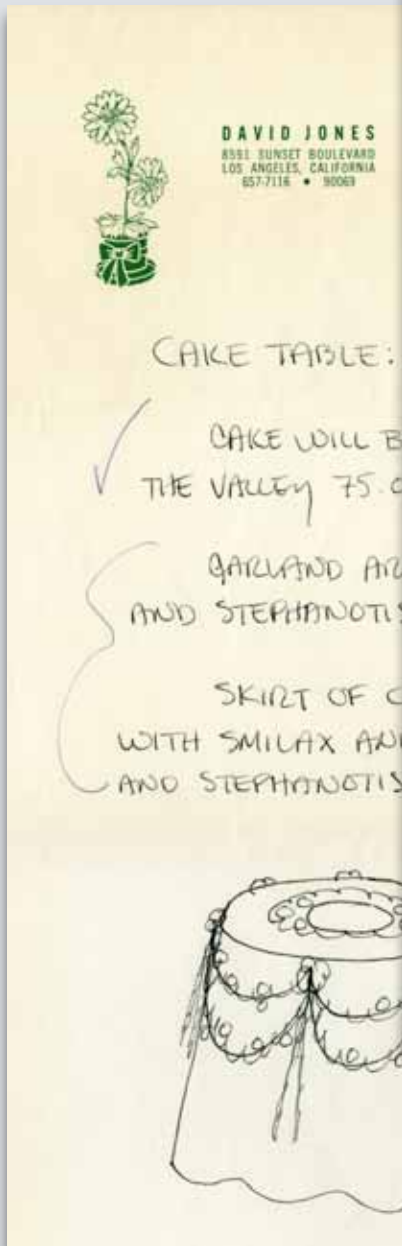 DAVID JONES
8591 SUNSET BOULEVARD
LOS ANGELES, CALIFORNIA
657-7116 • 90069
CAKE TABLE:
CAKE WILL B
THE VALLEY 75.0
GARLAND AR
AND STEPHANOTIS
SKIRT OF C
WITH SMILAX AN
AND STEPHANOTIS